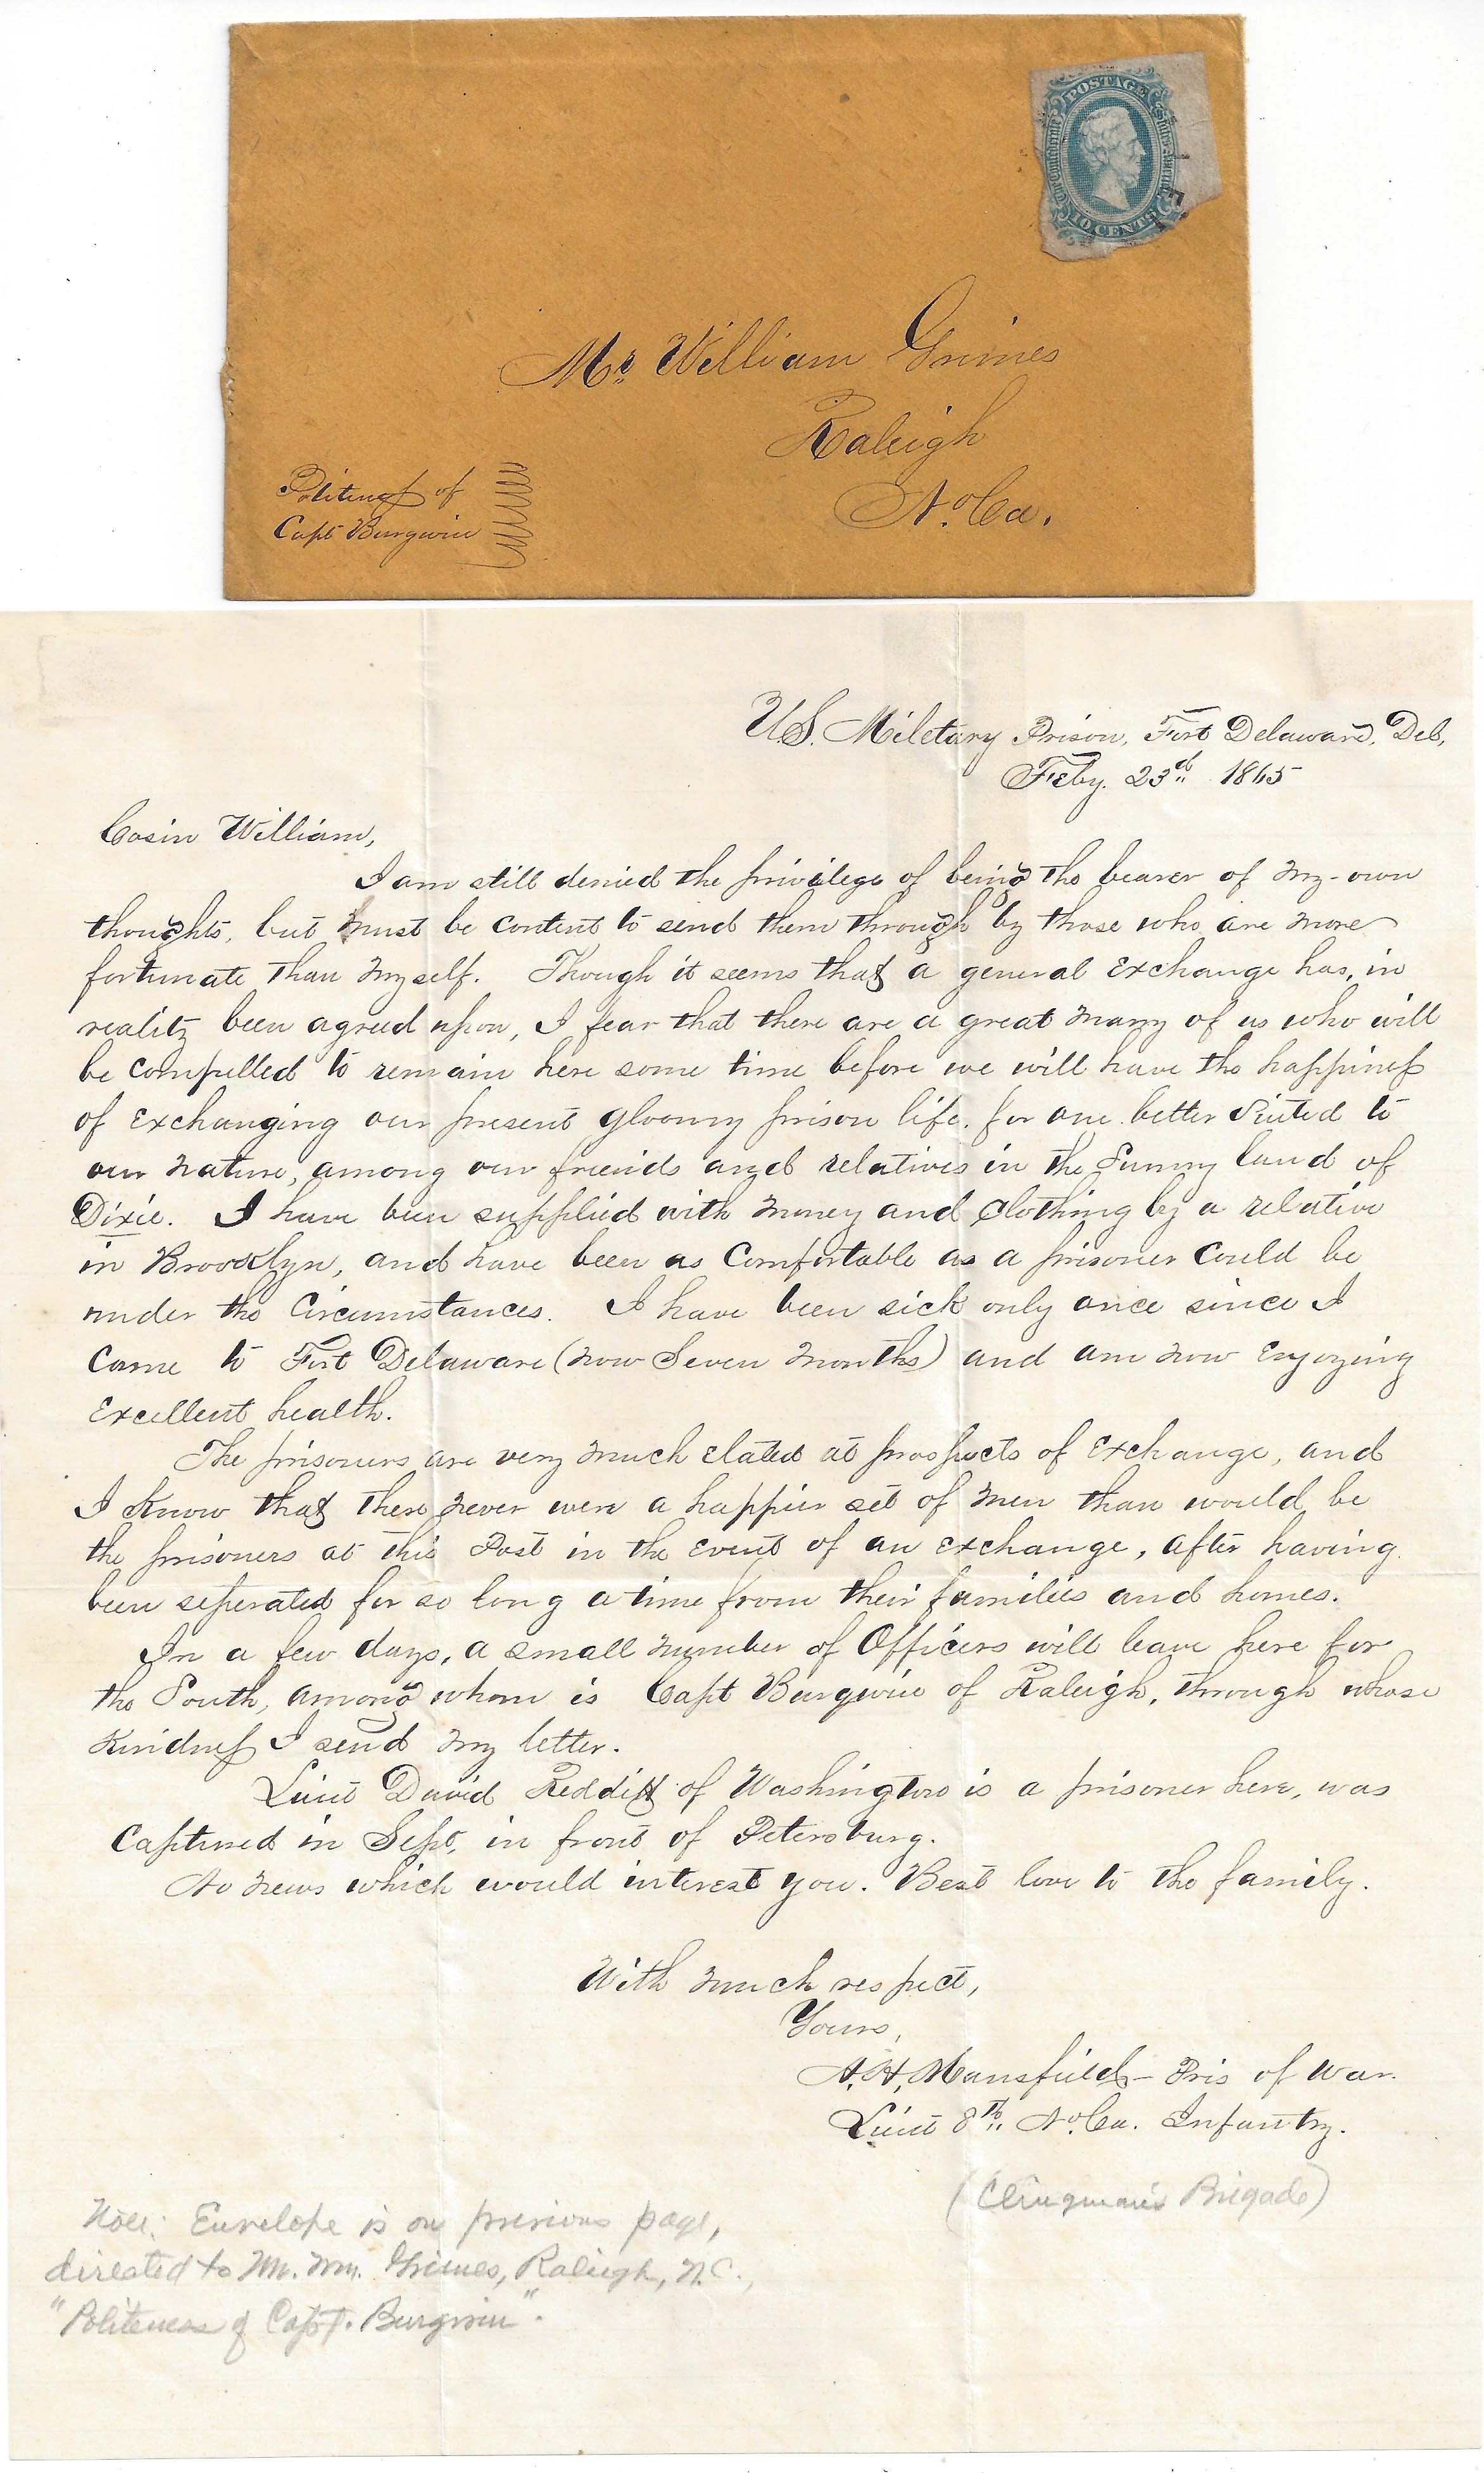 POSTAGE
The Confederate States of America
10 CENTS
Mr. William Grimes
Raleigh
No. Ca.
Politeness of
Capt Burgwin
U.S. Miletary Prison, Fort Delaware, Del,
Feby. 23d. 1865
Cosin William,
I am still denied the privilege of being the bearer of my-own
thoughts, but must be content to send them through by those who are more
fortunate than myself. Though it seems that a general exchange has, in
reality been agreed upon, I fear that there are a great many of us who will
be compelled to remain here some time before we will have the happiness
of exchanging our present gloomy prison life, for one better Suited to
our nature, among our friends and relatives in the Sunny land of
Dixie. I have been supplied with money and clothing by a relative
in Brooklyn, and have been as Comfortable as a prisoner could be
under the Circumstances. I have been sick only once since I
Came to Fort Delaware (now Seven months) and am now Enjoying
Excellent health.
The prisoners are very much elated at prospects of Exchange, and
I Know that there never were a happier set of men than would be
the prisoners at this Post in the Event of an exchange, after having
been seperated for so long a time from their families and homes.
In a few days, a small number of Officers will leave here for
the South, among whom is Capt Burgwin of Raleigh, through whose
Kindness I send my letter.
Lieut David Redditt of Washington is a prisoner here, was
Captured in Sept, in front of Petersburg.
No news which would interest you. Best love to the family.
With much respect,
Yours,
A. H, Mansfield - Pris of War.
Lieut 8th. No. Ca. Infantry.
(Clingman's Brigade)
Note: Envelope is on previous page,
directed to Mr. Wm. Grimes, Raleigh, N.C.,
"Politeness of Capt. Burgwin".